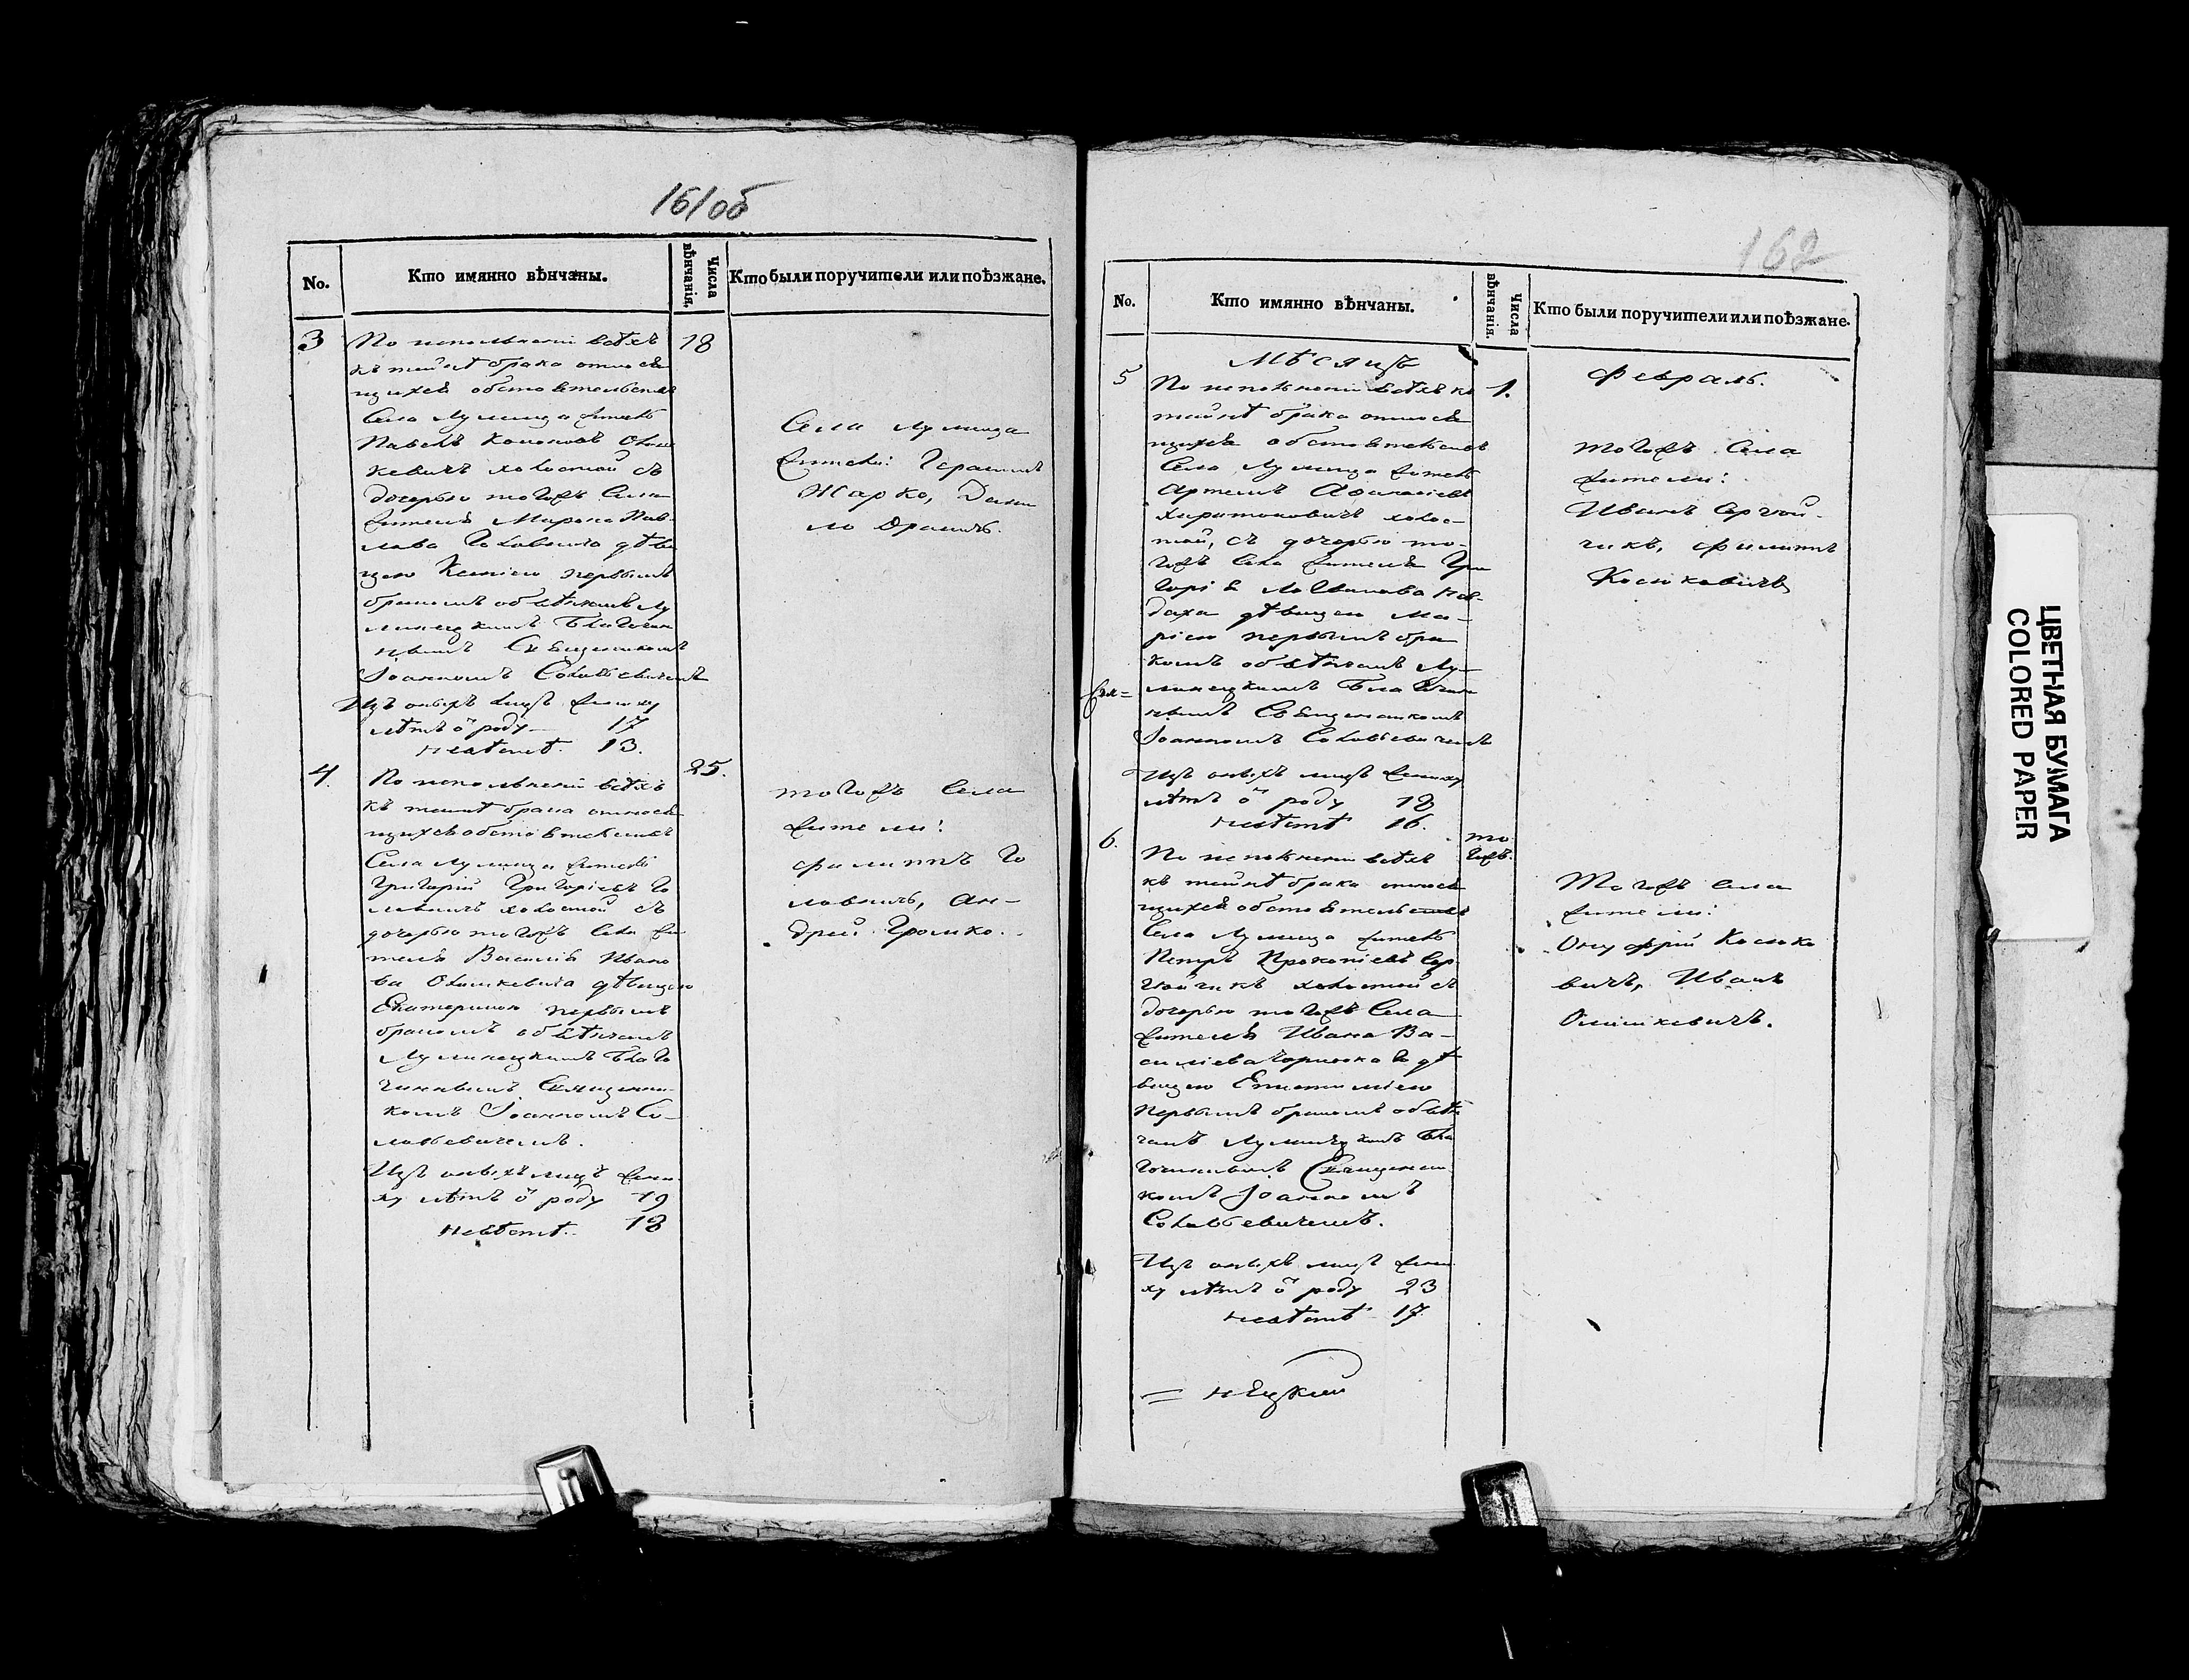 161об
No.
Кто имянно вѣнчаны.
Числа вѣнчанія.
Кто были поручители или поѣзжане.
3
По исполненіи всѣхъ
18
къ тайнѣ брака относя
щихся обстоятельствъ
Села Лунинца житель
Павелъ
кевичъ холостой съ
дочерью тогожъ Села
жителя Марка Пав
лова Головнича дѣви
цею Ксеніею первымъ
бракомъ обвѣнчанъ Лу
нинецкимъ Благочин
нымъ Священникомъ
Іоанномъ Соловьевичемъ
Изъ оныхъ лицъ жениху
лѣтъ ѿ роду 17
невѣстѣ. 13.
Села Лунинца
жители: Герасимъ
Жарко, Дани
ло
4.
По исполненіи всѣхъ
25.
къ тайнѣ брака относя
щихся обстоятельствъ
Села Лунинца житель
Григорій Григоріевъ Го
ловничъ холостой съ
дочерью тогожъ Села жи
теля Василія Ивано
ва Олишкевича дѣвицею
Екатериною первымъ
бракомъ обвѣнчанъ
Лунинецкимъ Благо
чиннымъ Священни
комъ Іоанномъ Со-
ловьевичемъ.
Изъ оныхъ лицъ жени
ху лѣтъ ѿ роду 19
невѣстѣ. 18
тогожъ Села
жители:
Филиппъ Го
ловничъ, Ан-
дрей Громко.
162
No.
Кто имянно вѣнчаны.
Числа вѣнчанія.
Кто были поручители или поѣзжане.
Мѣсяцъ
Февраль.
5
По исполненіи всѣхъ къ
1.
тайнѣ брака относя
щихся обстоятельствъ
Села Лунинца житель
Артемъ Аѳанасіевъ
Харитоновичъ холос-
той, съ дочерью то-
гожъ Села жителя Гри
горія
дѣвицею Ма-
ріею первымъ бра
комъ обвѣнчанъ Лу-
нинецкимъ Благочин
нымъ Священникомъ
Іоанномъ Соловьевичемъ
Изъ оныхъ лицъ жениху
лѣтъ ѿ роду 18
невѣстѣ 16.
тогожъ Села
жители:
Иванъ Сергей-
чикъ, Филиппъ
Косюковичъ
6.
По исполненіи всѣхъ
то
гожъ.
къ тайнѣ брака относя
щихся обстоятельствъ
Села Лунинца житель
Петръ Прокопіевъ Сер
гейчикъ холостой съ
дочерью тогожъ Села
жителя Ивана Ва-
силіева дѣ
вицею
первымъ бракомъ обвѣн
чанъ Лунинецкимъ Бла
гочиннымъ Священни
комъ Іоанномъ
Соловьевичемъ.
Изъ оныхъ лицъ жени
ху лѣтъ ѿ роду 23
невѣстѣ 17
Тогожъ Села
жители:
Онуфрій Косюко
вичъ, Иванъ
Олишкевичъ.
ЦВЕТНАЯ БУМАГА
COLORED PAPER